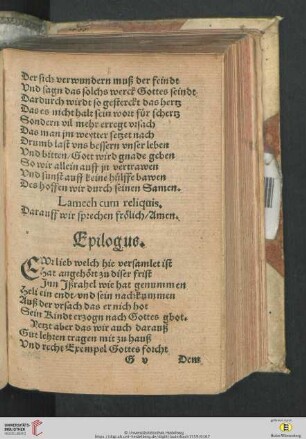 Der sich verwundern muß der feindt
Vnd sagn das solchs werck Gottes seindt
Dardurch wirdt so gesterckt das hertz
Das es nicht halt sein wort für schertz
Sondern vil mehr erregt vrsach
Das man jm weyter setzt nach
Drumb last vns bessern vnser leben
Vnd bitten Gott wird gnade geben
So wir allein auff jn vertrawen
Vnd sunst auff keine hülffe bawen
Des hoffen wir durch seinen Samen.
Lamech cum reliquis,
Darauff wir sprechen frölich/Amen.
Epilogus.
EWrlieb welch hie versamlet ist
Hat angehört zu diser frist
Inn Jßrahel wie hat genummen
Heli ein ende vnd sein nachkummen
Auß der vrsach das er nich hot
Sein Kindt erzogn nach Gottes ghot.
Jetzt aber das wir auch darauß
Gut lehren tragen mit zu hauß
Vnd recht Exempel Gottes forcht
G v Dem
UNIVERSITÄTS-
BIBLIOTHEK
HEIDELBERG
© Universitätsbibliothek Heidelberg